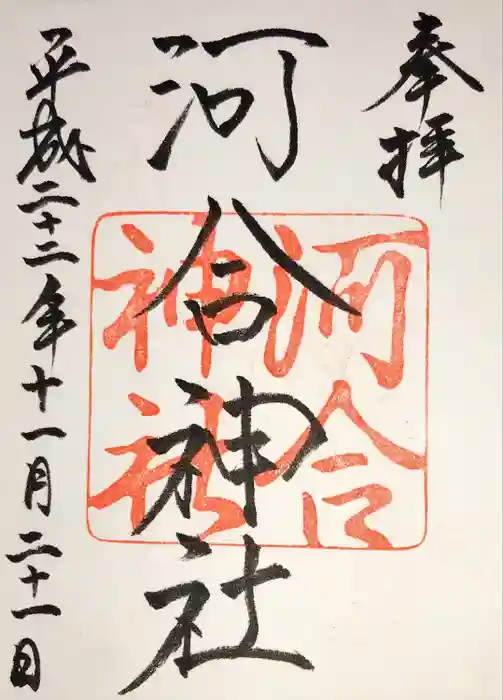 奉拝
河合神社
河合
神社
平成二十二年十一月二十一日